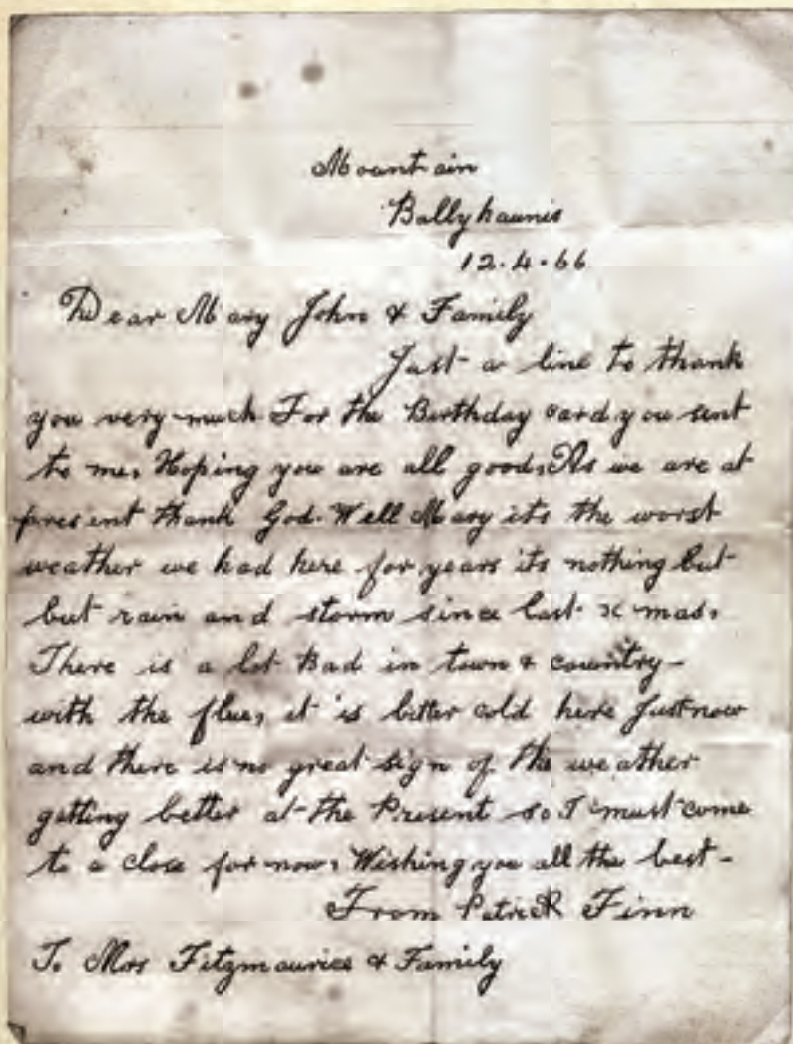 Mountain
Ballyhaunis
12.4.66
Dear Mary John & Family
Just a line to thank
you very much For the Birthday card you sent
to me. Hoping you are all good. As we are at
present thank God. Well Mary its the worst
weather we had here for years its nothing but
but rain and storm since last x mas.
There is a lot Bad in town & country -
with the flue, it is bitter cold here Just now
and there is no great sign of the weather
getting better at the Present so I must come
to a close for now. Wishing you all the best -
From Patrick Finn
To Mrs Fitzmaurice & Family